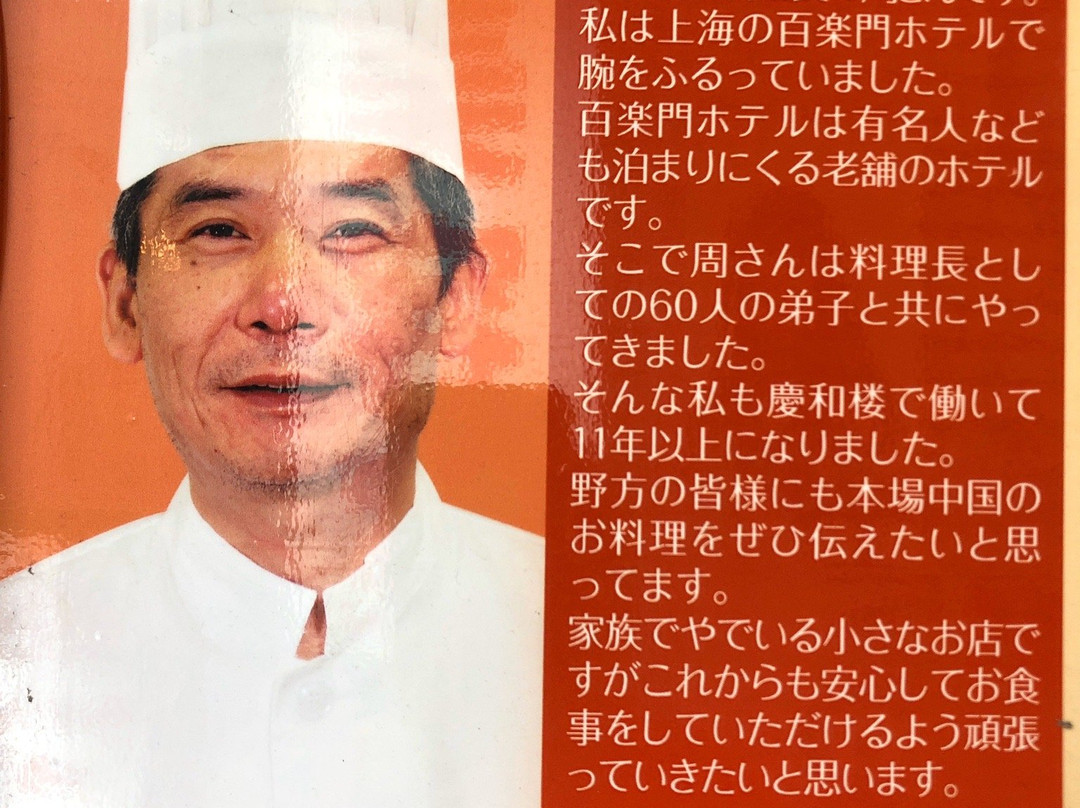 私は上海の百楽門ホテルで
腕をふるっていました。
百楽門ホテルは有名人など
も泊まりにくる老舗のホテル
です。
そこで周さんは料理長とし
ての60人の弟子と共にやっ
てきました。
そんな私も慶和楼で働いて
11年以上になりました。
野方の皆様にも本場中国の
お料理をぜひ伝えたいと思
ってます。
家族でやでいる小さなお店で
すがこれからも安心してお食
事をしていただけるよう頑張
っていきたいと思います。